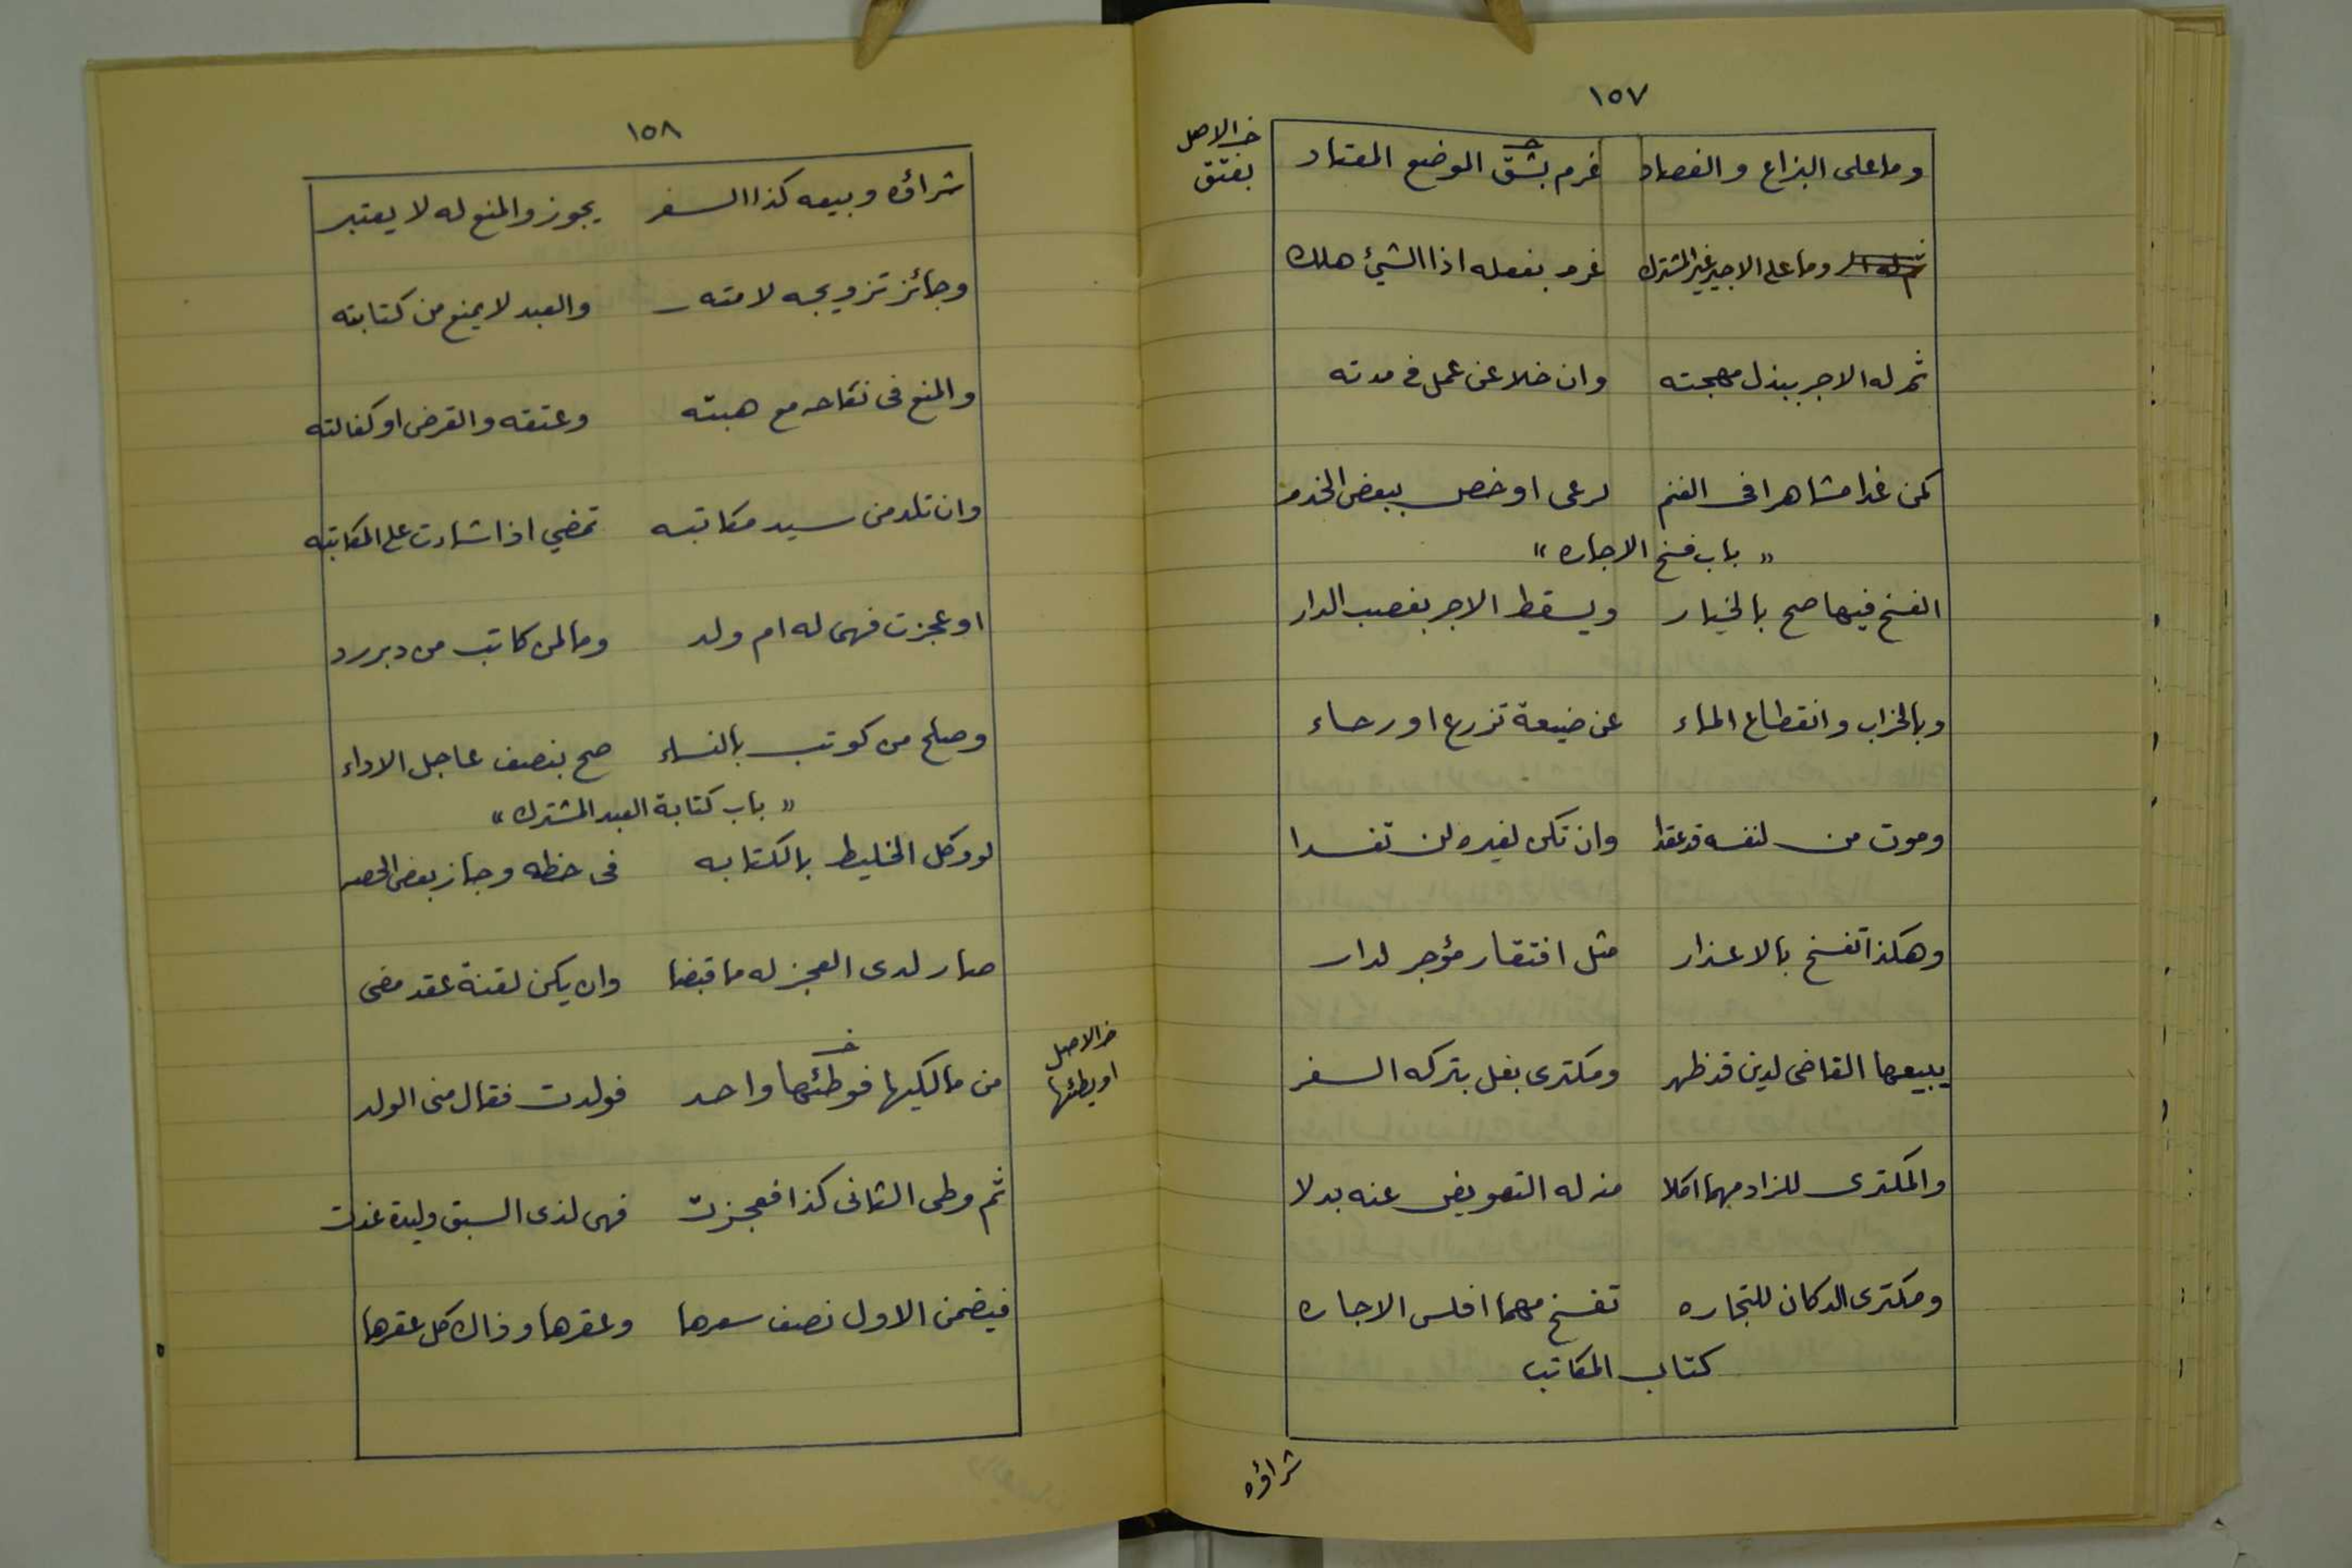 ١٥٧
وما على البزاع والفصاد غرم بشق الموضع المعتاد
خ الاصل
بفتق
وما على الاجير غير المشترك غرم بفعله اذا الشيء هلك
ثم له الاجر ببذل مهجته وان خلا عن عمل في مدته
كمن غدا مشاهرا فى الغنم لرعى او خص ببعض الخدم
" باب فسخ الاجاره "
الفسخ فيها صح بالخيار ويسقط الاجر بغصب الدار
وبالخراب وانقطاع الماء عن ضيعة تزرع او رحاء
وموت من لنفسه قد عقدا وان تكن لغيره لن تفسدا
وهكذا تفسخ بالاعذار مثل افتقار مؤجر لدار
يبيعها القاضى لدين قد ظهر ومكترى بغل بتركه السفر
والمكترى للزاد مهما اكلا منه له التعويض عنه بدلا
ومكترى الدكان للتجاره تفسخ مهما افلس الاجاره
كتاب المكاتب
شراؤه
١٥٨
شراؤه وبيعه كذا السفر يجوز والمنع له لا يعتبر
وجائز تزويجه لامته والعبد لا يمنع من كتابته
والمنع فى نكاحه مع هبته وعتقه والقرض او كفالته
وان تلد من سيد مكاتبه تمضي اذا شاءت على المكاتبه
او عجزت فهى له ام ولد وما لمن كاتب من دبر رد
وصلح من كوتب بالنساء صح بنصف عاجل الاداء
" باب كتابة العبد المشترك "
لو وكل الخليط بالكتابه فى حظه وحاز بعض الحصه
صار لدى العجز له ما قبضا وان يكن لقنة عقد مضى
من مالكيها فوطئها واحد فولدت فقال منى الولد
خ الاصل
او يطئها
ثم وطى الثانى كذا فعجزت فهى لذى السبق وليدة غدت
فيضمن الاول نصف سعرها وعقرها وذاك كل عقرها